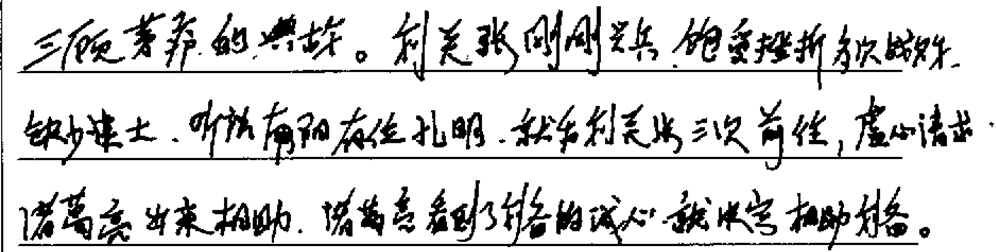 三顾茅庐的典故。刘关张刚刚兴兵、饱受挫折多次战败、
缺少谋士、听说南阳有位孔明、就有刘关张三次前往，虚心请出
诸葛亮出来相助、诸葛亮看到了刘备的诚心就决定相助刘备。